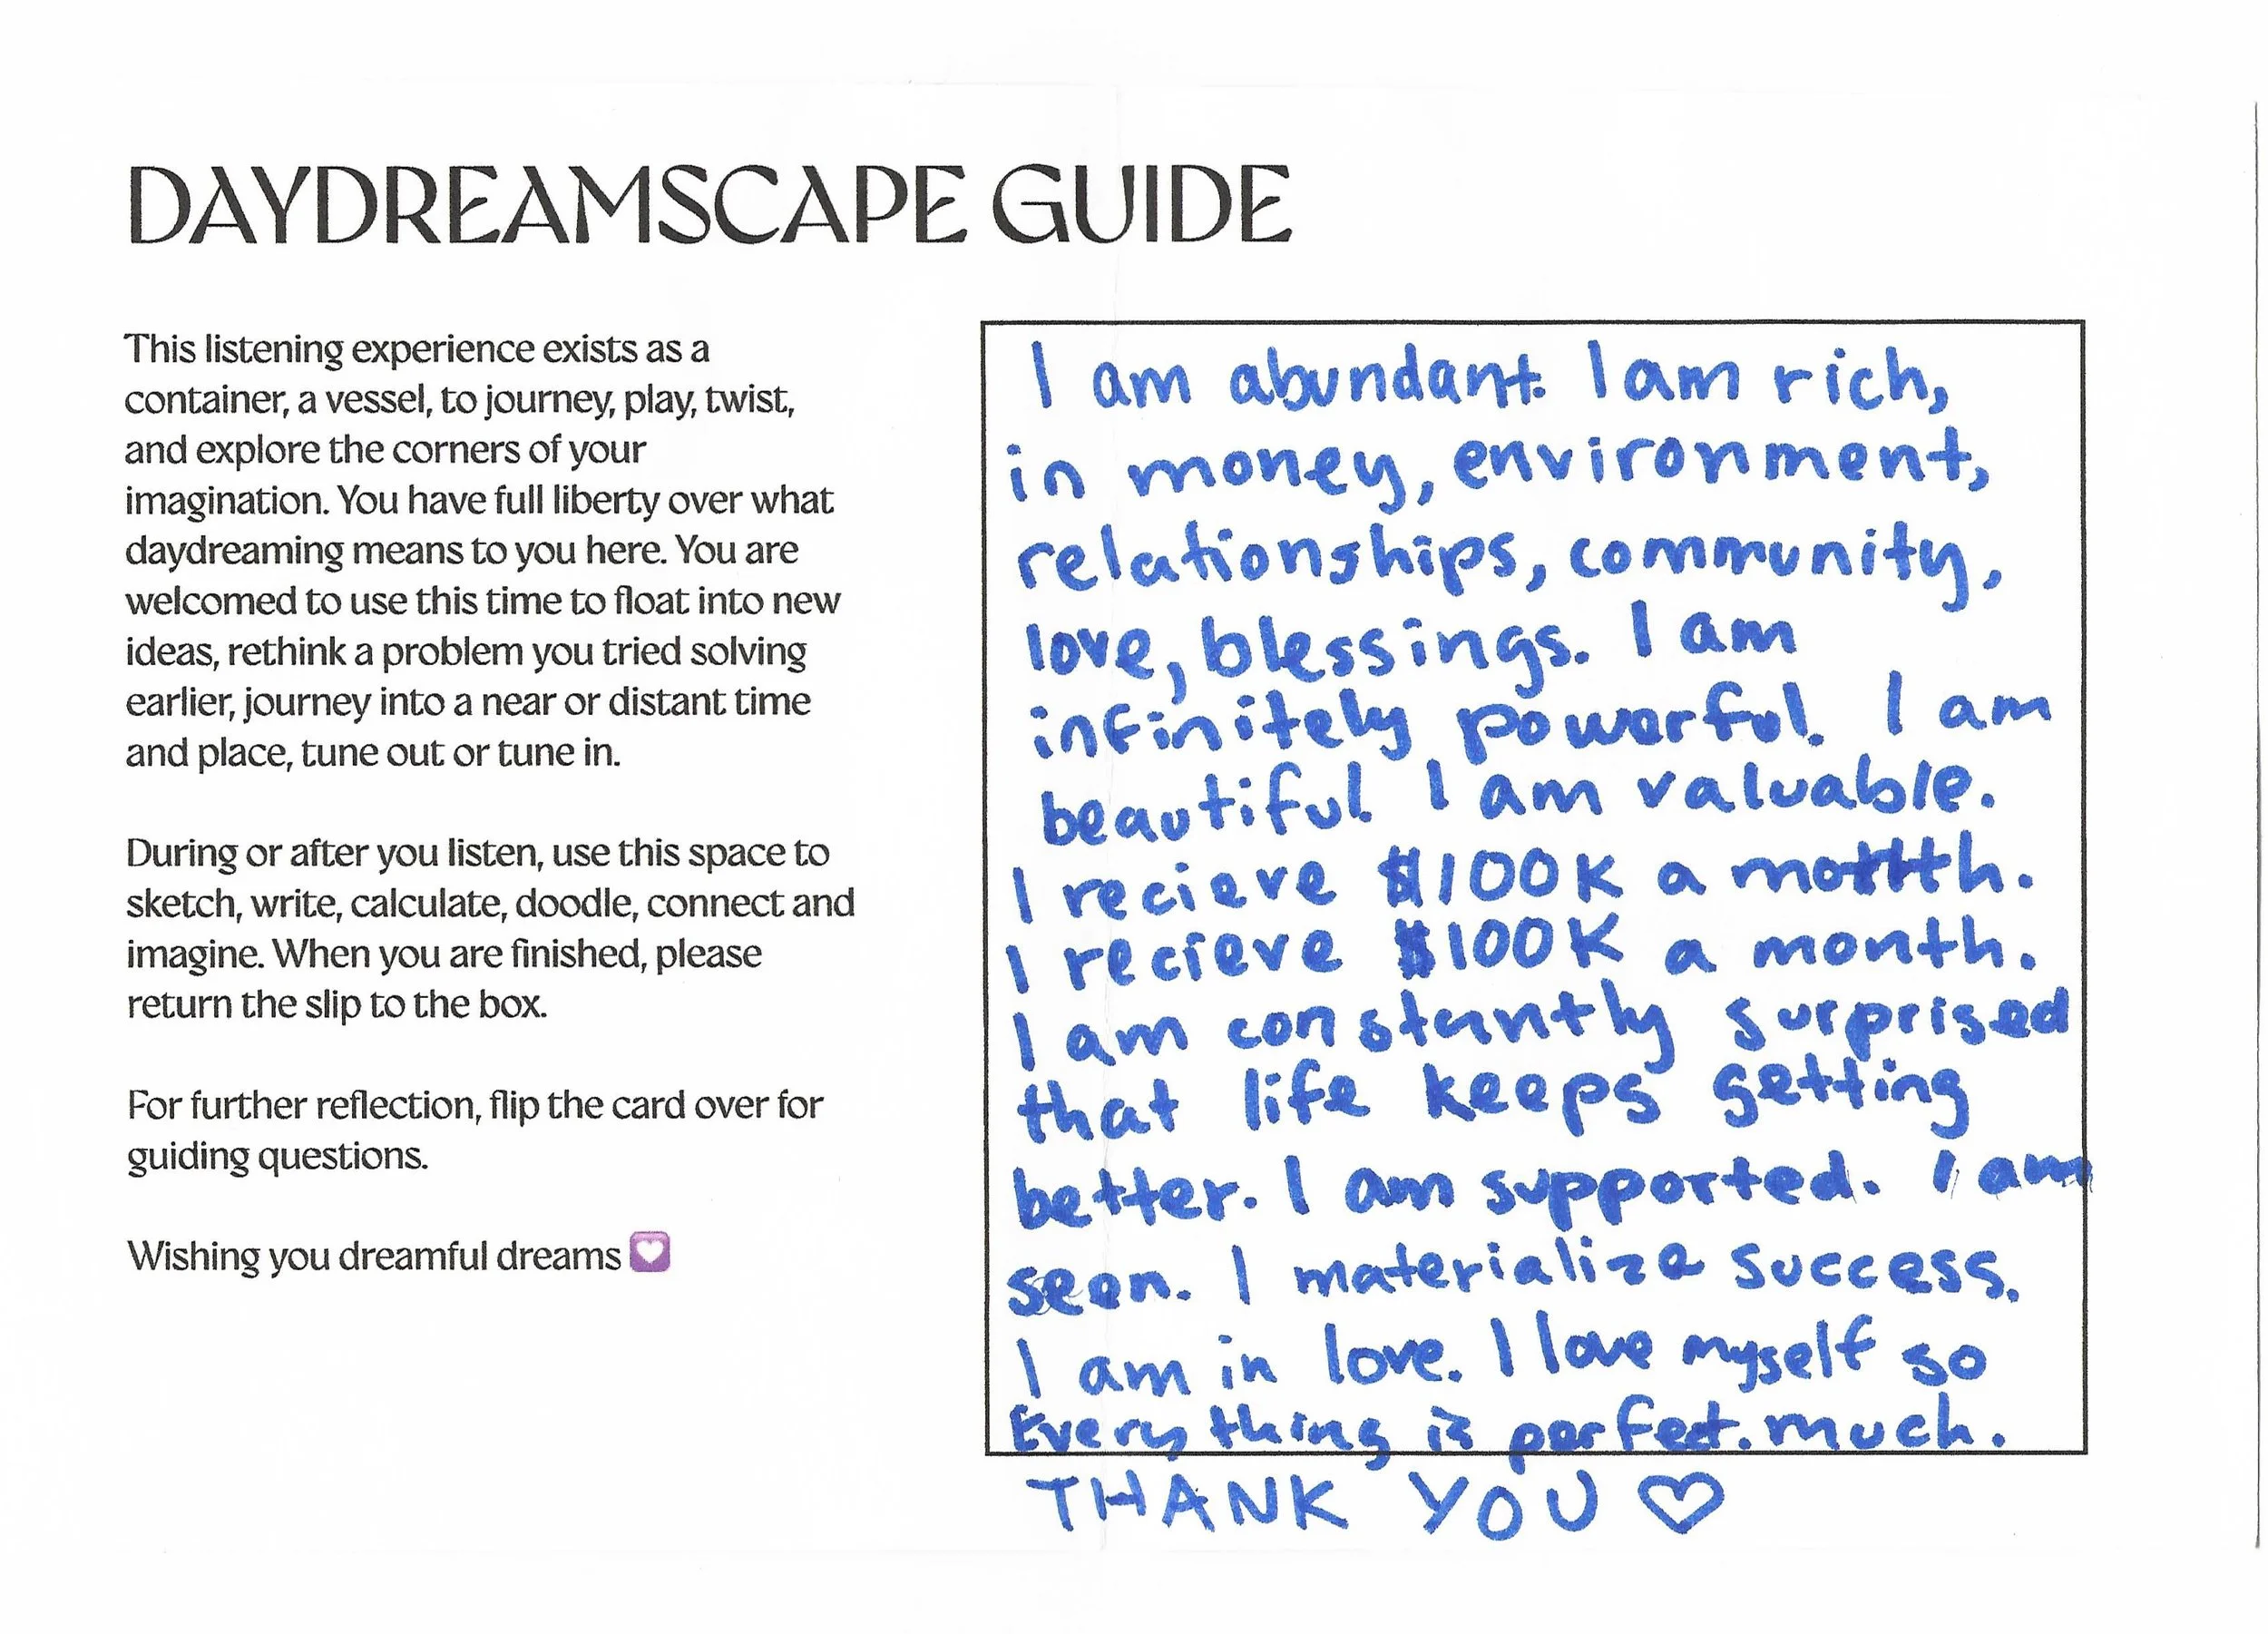 DAYDREAMSCAPE GUIDE
This listening experience exists as a
container, a vessel, to journey, play, twist,
and explore the corners of your
imagination. You have full liberty over what
daydreaming means to you here. You are
welcomed to use this time to float into new
ideas, rethink a problem you tried solving
earlier, journey into a near or distant time
and place, tune out or tune in.
During or after you listen, use this space to
sketch, write, calculate, doodle, connect and
imagine. When you are finished, please
return the slip to the box.
For further reflection, flip the card over for
guiding questions.
Wishing you dreamful dreams 💟
I am abundant. I am rich,
in money, environment,
relationships, community,
love, blessings. I am
infinitely powerful. I am
beautiful. I am valuable.
I recieve $100K a month.
I recieve $100K a month.
I am constantly surprised
that life keeps getting
better. I am supported. I am
seen. I materialize success.
I am in love. I love myself so
Everything is perfect. much.
THANK YOU ♡